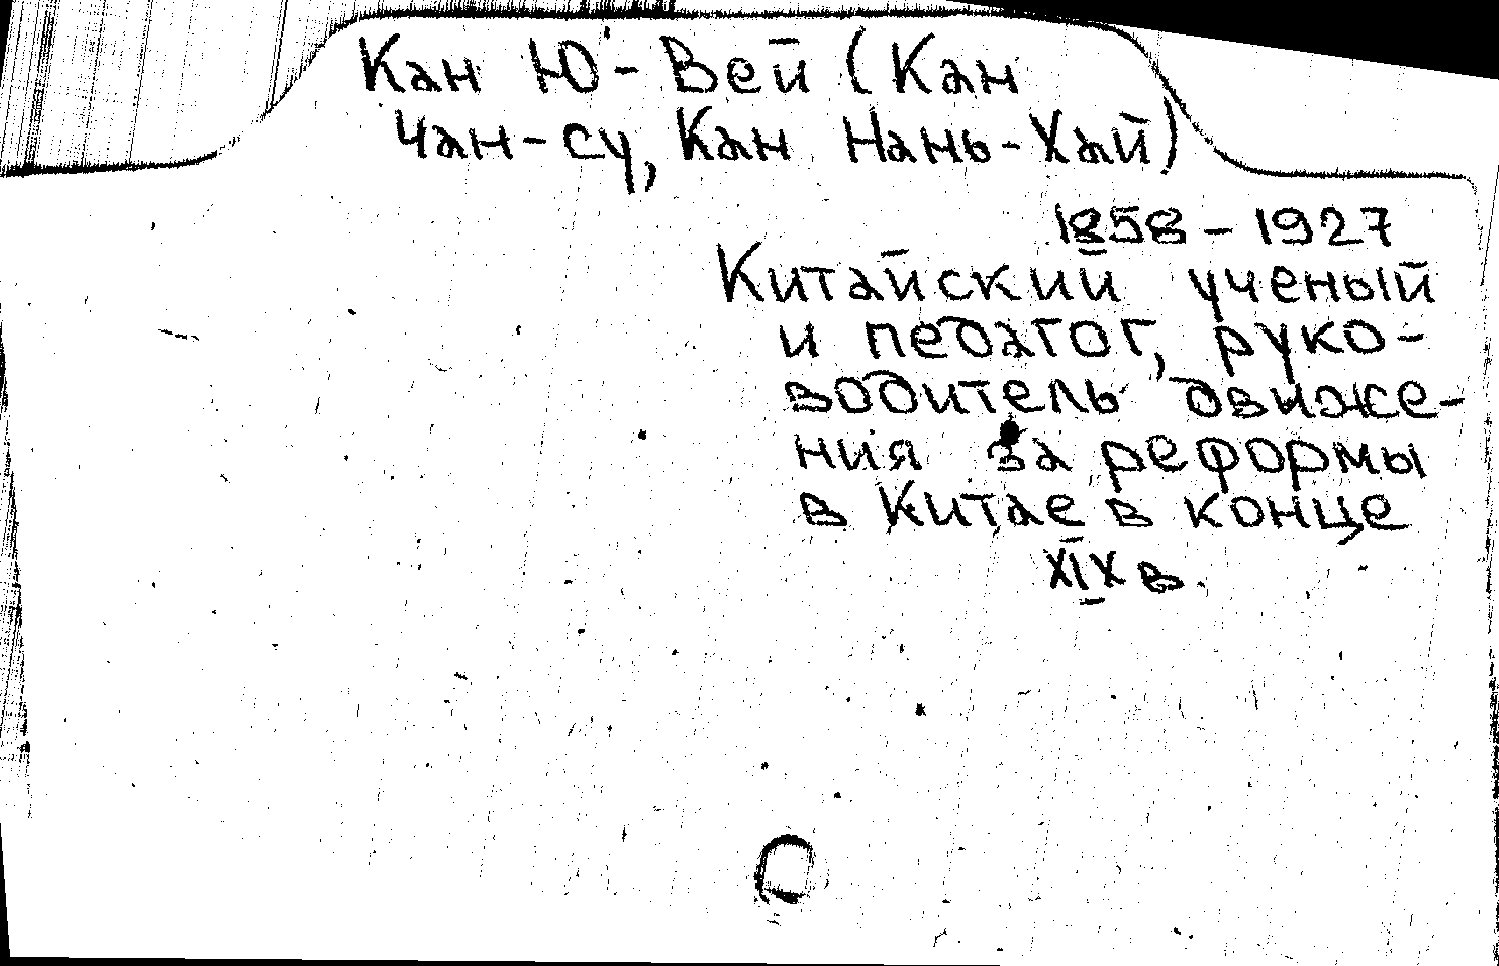 Кан Ю'-Вей (Кан
Чан-су, Кан Нань-Хай)
1858 – 1927
Китайский ученый
и педагог, руко-
водитель движе-
ния за реформы
в Китае в конце
XIX в.